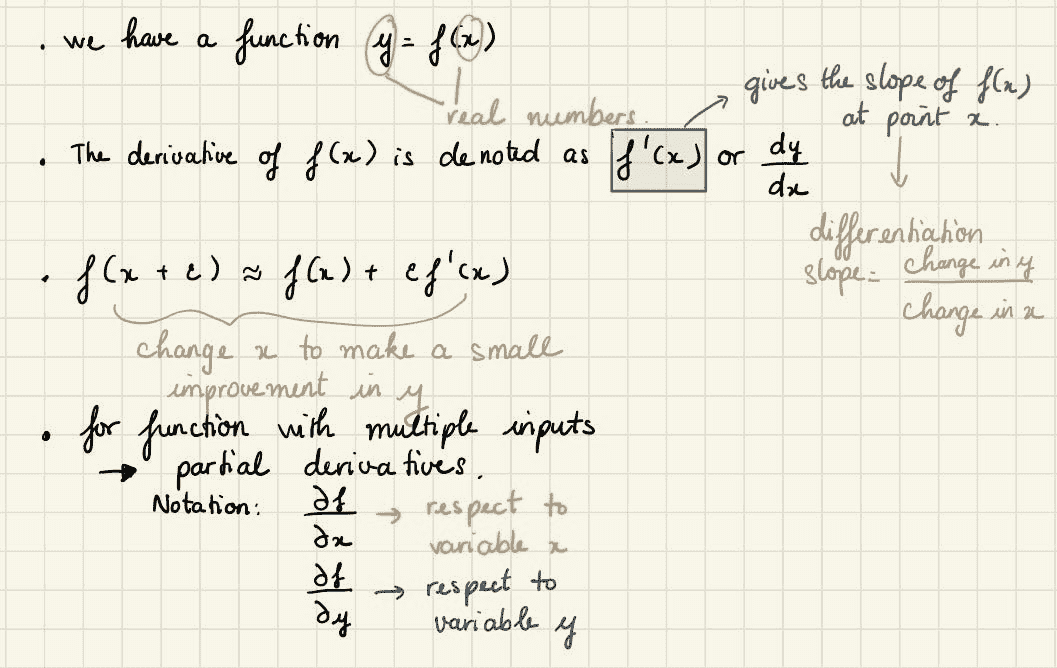 . we have a function y = f(x)
real numbers.
gives the slope of f(x)
at point x.
. The derivative of f(x) is denoted as f'(x) or dy/dx
differentiation
slope = change in y / change in x
. f(x + ε) ≈ f(x) + εf'(x)
change x to make a small
improvement in y
• for function with multiple inputs
→ partial derivatives.
Notation: ∂f/∂x → respect to
variable x
∂f/∂y → respect to
variable y